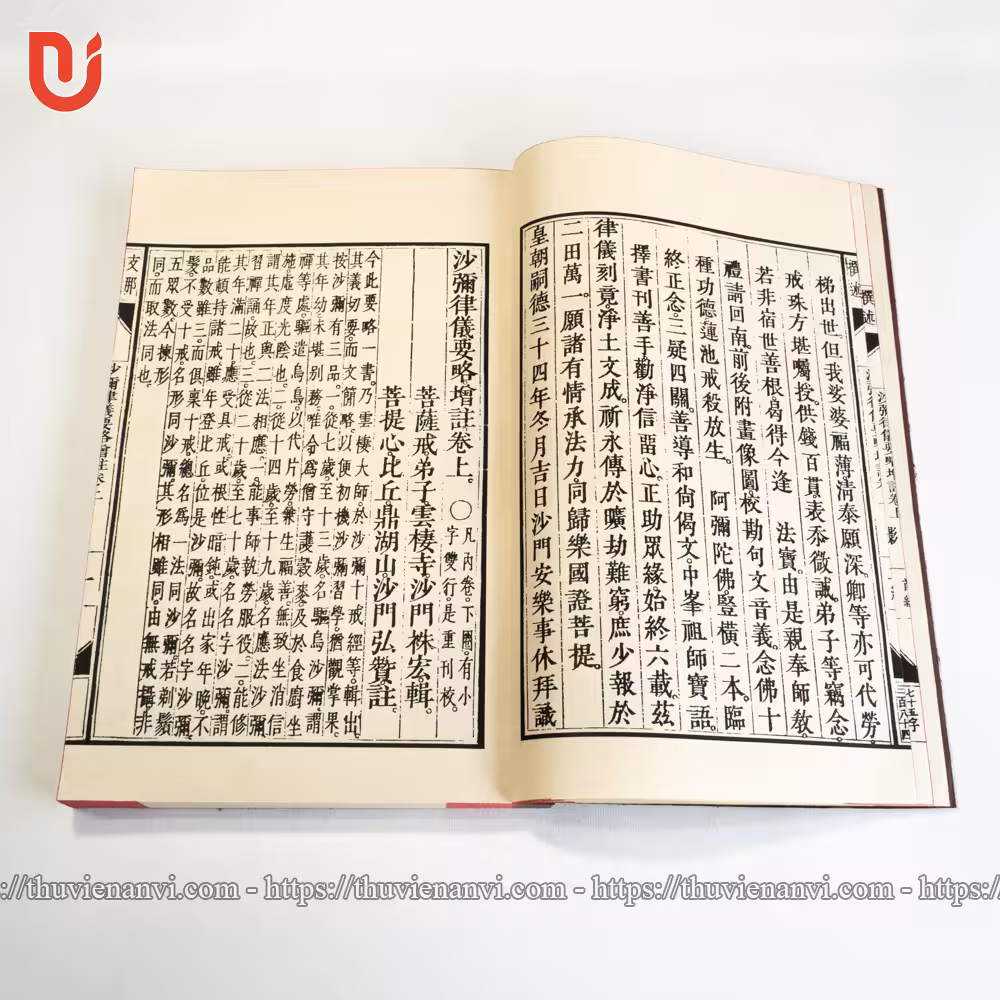 梯出世。但我娑婆福薄清泰願深。卿等亦可代勞。
戒珠方堪囑授。供錢百貫表忝微誠。弟子等竊念。
若非宿世善根。曷得今逢 法寶。由是親奉師敎
禮請回南。前後附畫像圖。校勘句文音義。念佛十
種功德。蓮池戒殺放生。 阿彌陀佛。豎橫二本。臨
終正念。三疑四關。善導和尙偈文。中峯祖師寶語。
擇書刊善手。勸淨信畱心。正助眾緣。始終六載。茲
律儀刻竟。淨土文成。祈永傳於曠劫難窮。庶少報於
二田萬一。願諸有情承法力。同歸樂國證菩提。
皇朝嗣德三十四年冬月吉日沙門安樂事休拜識
沙彌律儀要略增註卷上。〇凡內卷。下圈。有小
字雙行。是重刊校。
菩薩戒弟子。雲棲寺沙門袾宏輯。
菩提心。比丘。鼎湖山。沙門弘贊註。
今此要略一書。乃雲棲大師於沙彌十戒經等。輯出
其義切要。而文簡略。以便初機沙彌習學。猶觀掌果。
按沙彌有三品。一從七歲至十三歲。名驅烏沙彌。謂
其年幼。未堪別務。唯令爲僧守護穀菜。及於食廚坐
禪等處。驅遣烏鳥。以代片勞。兼生福善。無致坐消信
施。虛度光陰也。二從十四歲至十九歲。名應法沙彌。
謂其年正與二法相應。一能事師執勞服役。二能修
習禪誦故也。三從二十歲至七十歲。名名字沙彌。謂
其年滿二十。應受具戒。或根性暗鈍。或出家年晚。不
能頓持諸戒。雖年登比丘。位是沙彌。故名名字沙彌。
品數雖三。而俱稟十戒。總名爲一法同沙彌。若剃鬚
髮。不受十戒。名形同沙彌。其形相雖同。由無戒攝。非
五眾數。今揀形
同。而取法同也。
支那
沙彌律儀要略增註卷上
撰述
https://thuvienanvi.com - https://thuvienanvi.com - https://thuvienanvi.com - https://thuvienanvi.com